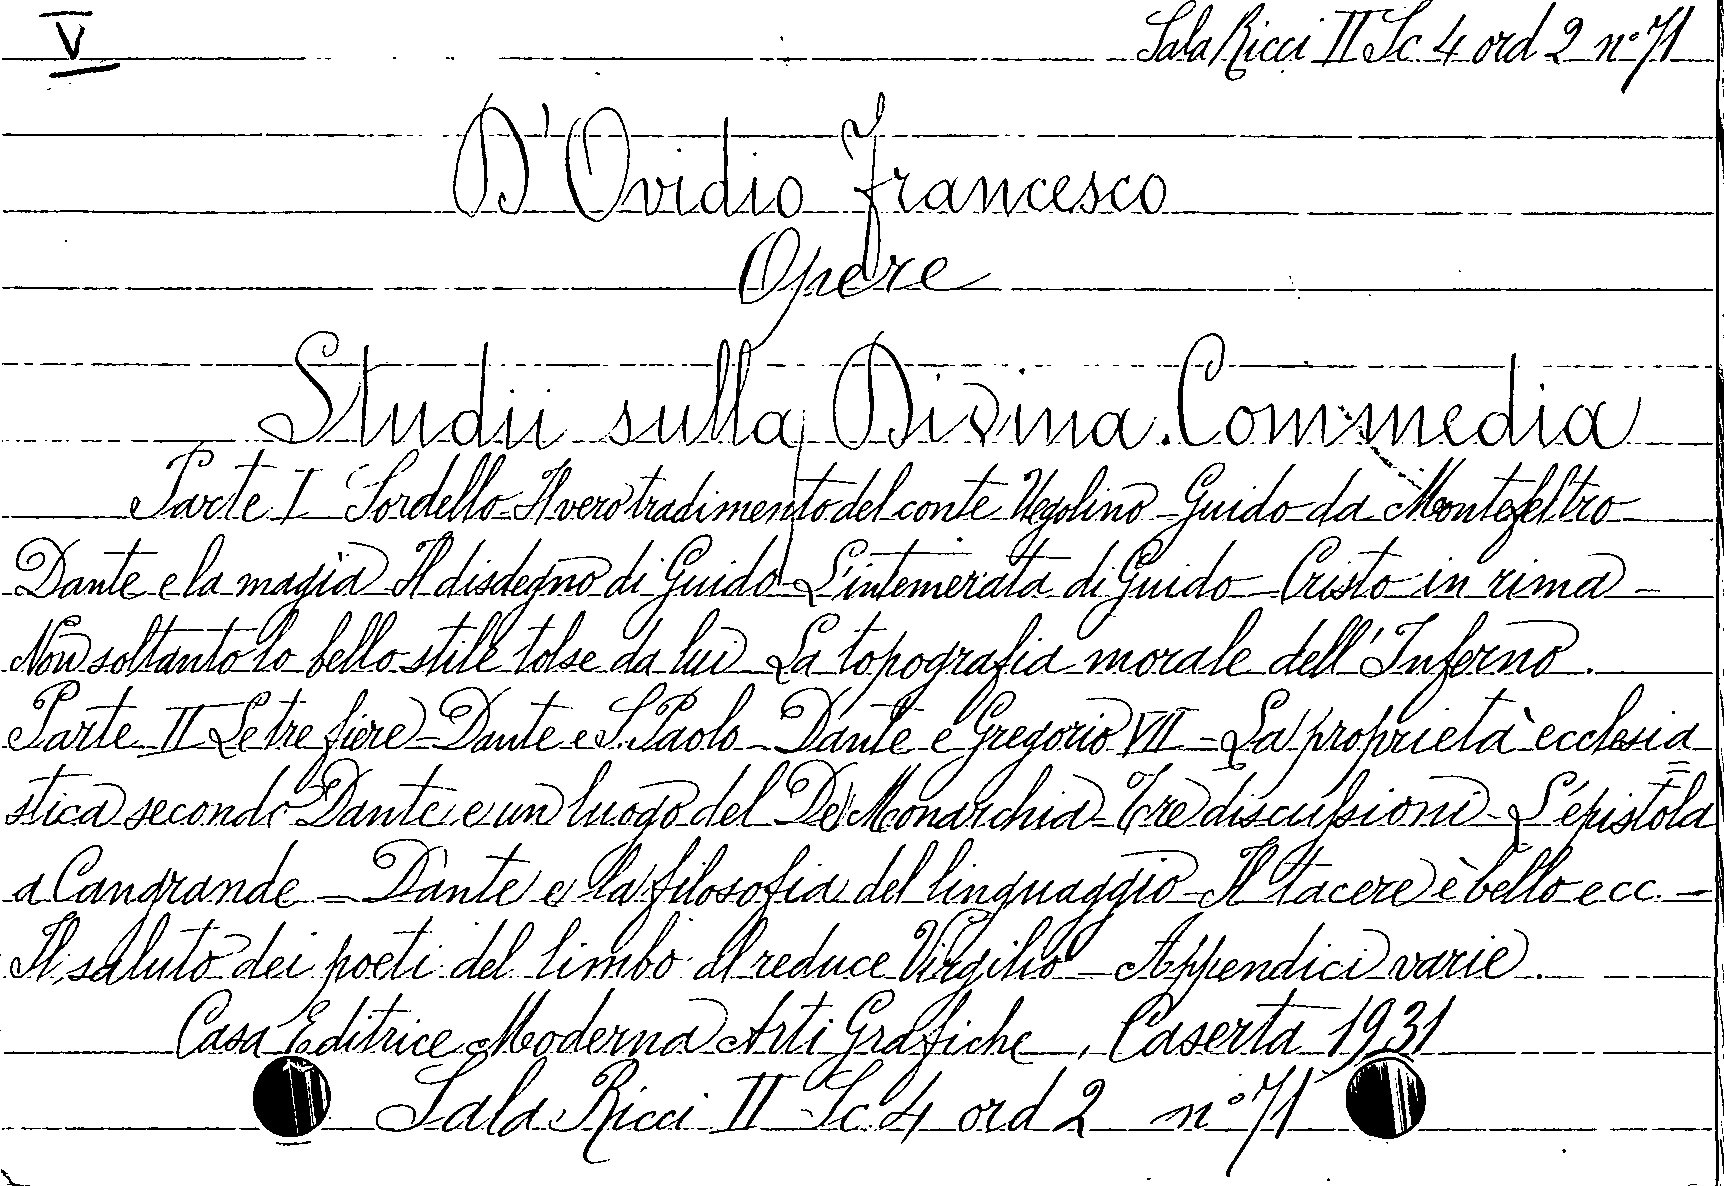 V
Sala Ricci II Sc 4 ord 2 n° 71
D'Ovidio Francesco
Opere
Studii sulla Divina Commedia
Parte I Sordello - Il vero tradimento del conte Ugolino - Guido da Montefeltro
Dante e la magia Il disdegno di Guido - L'intemerata di Guido - Cristo in rima -
Non soltanto lo bello stile tolse da lui La topografia morale dell'Inferno.
Parte II Le tre fiere - Dante e S. Paolo - Dante e Gregorio VII - La proprietà ecclesia=
stica secondo Dante e un luogo del De Monarchia - Tre discussioni - L'epistola
a Cangrande - Dante e la filosofia del linguaggio - Il tacere è bello ecc. -
Il saluto dei poeti del limbo al reduce Virgilio - Appendici varie.
Casa Editrice Moderna Arti Grafiche, Caserta 1931
Sala Ricci II Sc 4 ord 2 n° 71